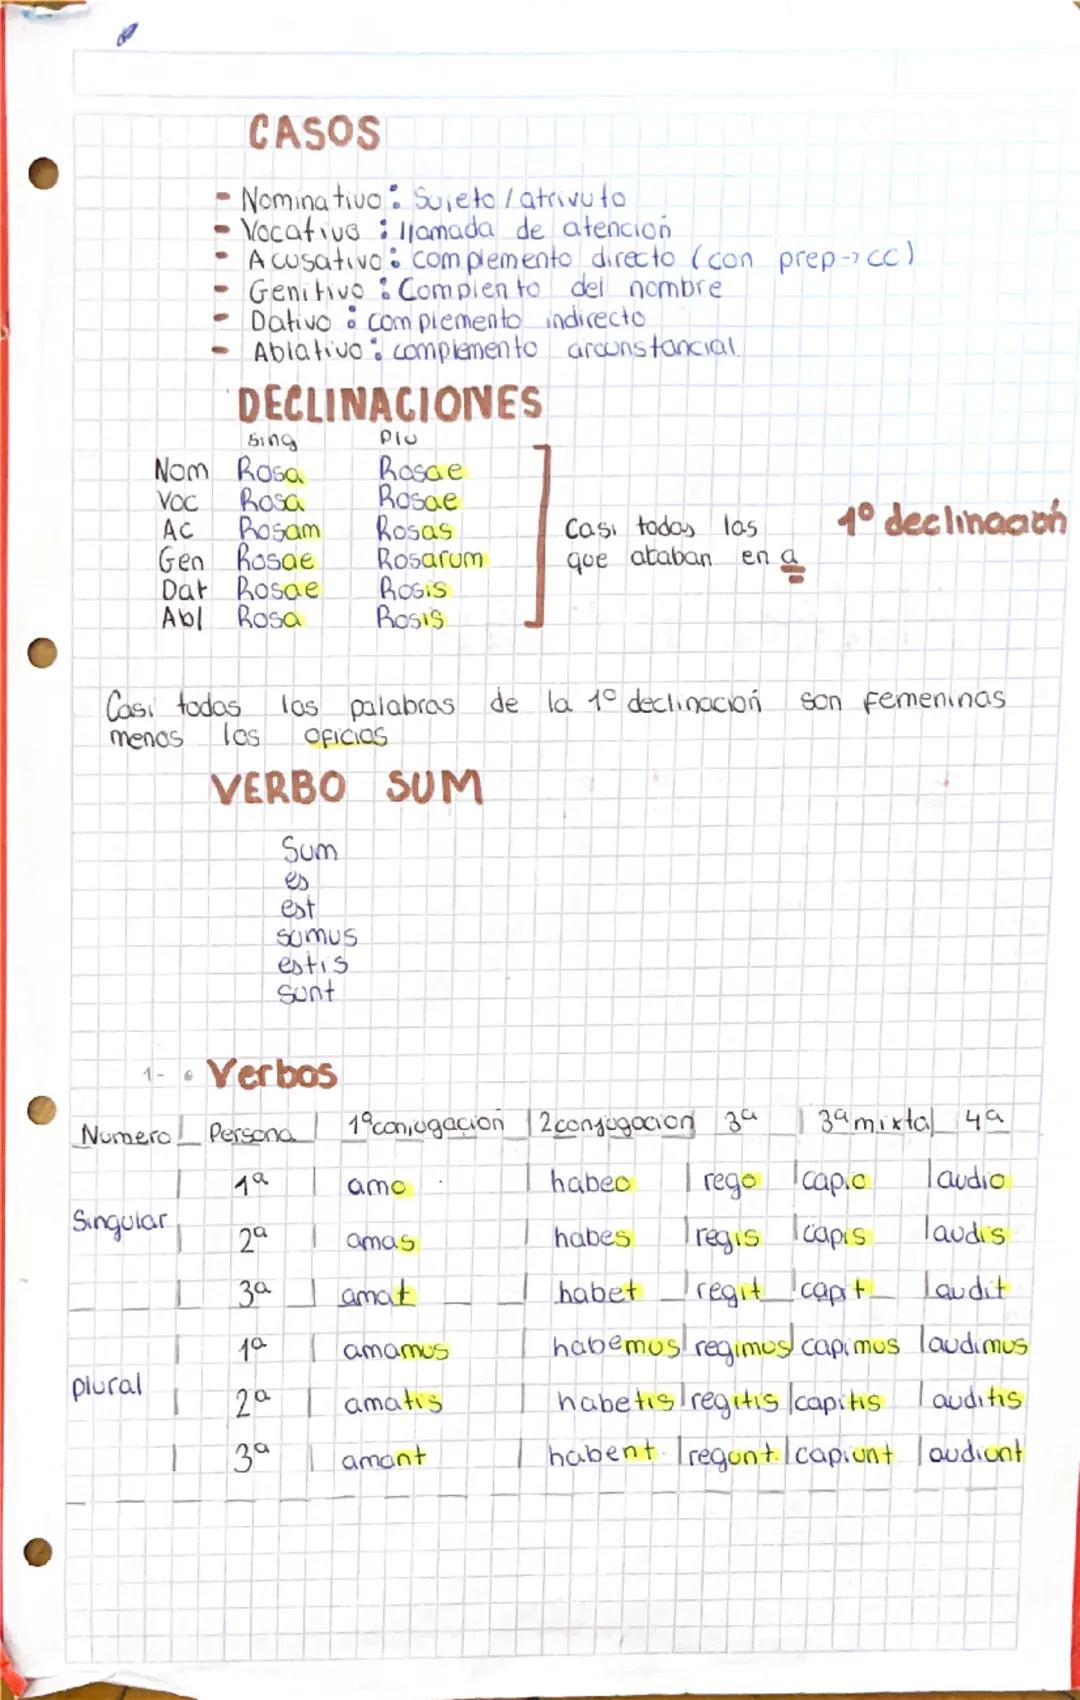 CASOS
- Nominativo: Sujeto / atrivuto
- Vocativo: llamada de atención
- Acusativo: complemento directo (con prep → CC)
- Genitivo: Compiento del nombre
- Dativo: complemento indirecto
- Ablativo: complemento circunstancial
DECLINACIONES
sing plu
Nom Rosa Rosae
Voc Rosa Rosae
Ac Rosam Rosas
Gen Rosae Rosarum
Dat Rosae Rosis
Abl Rosa Rosis
Casi todas las
que acaban en a
1º declinación
Casi todas las palabras de la 1º declinación son femeninas
menos los oficios
VERBO SUM
Sum
es
est
sumus
estis
sunt
1- • Verbos
Numero | Persona | 1ªconjugación | 2conjugacion 3ª | 3ªmixta | 4ª
1ª | amo | habeo | rego | capio | audio
Singular
2ª | amas | habes | regis | capis | audis
3ª | amat | habet | regit | capit | audit
1ª | amamus | habemus | regimus | capimus | audimus
plural
2ª | amatis | habetis | regitis | capitis | auditis
3ª | amant | habent | regunt | capiunt | audiunt